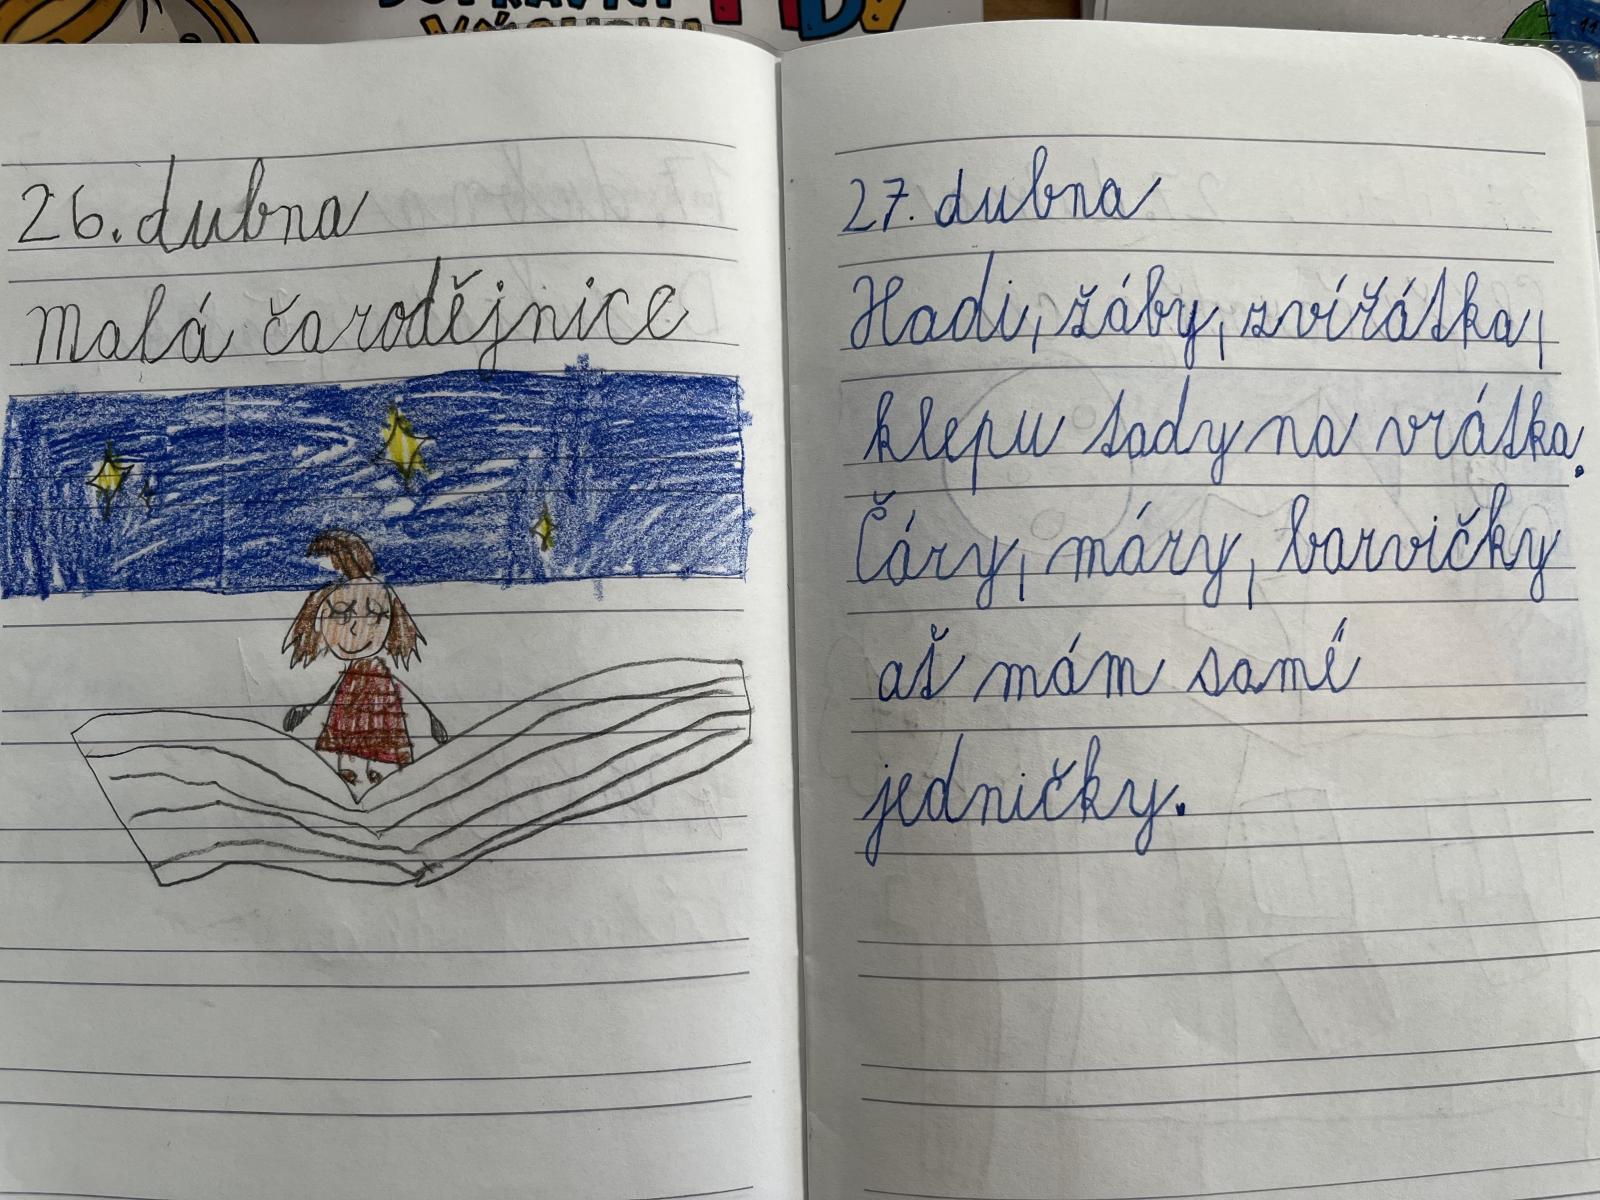 26. dubna
Malá čarodějnice
27. dubna
Hadi, žáby, zvířátka,
klepu tady na vrátka.
Čáry, máry, barvičky
ať mám samé
jedničky.